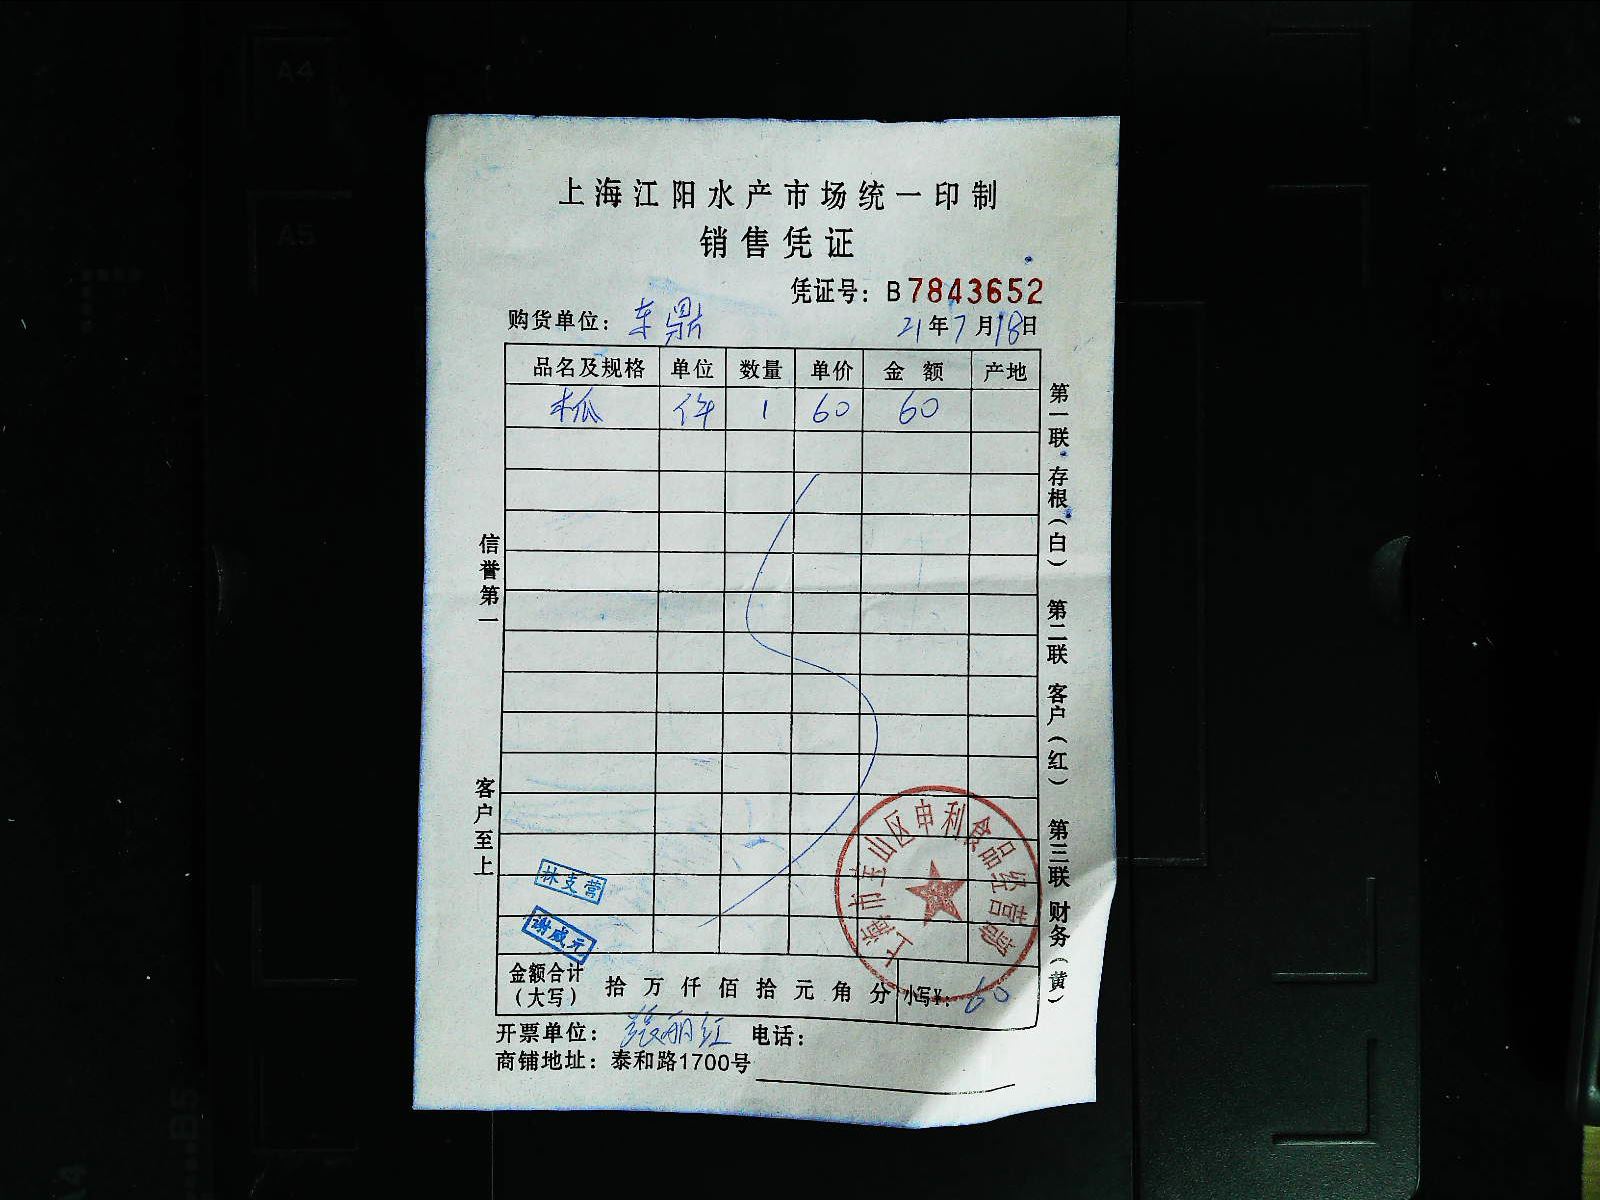 A4
A5
上海江阳水产市场统一印制
销售凭证
凭证号：B7843652
购货单位：东鼎 21年7月18日
品名及规格 单位 数量 单价 金额 产地
木瓜 件 1 60 60
第一联 存根（白） 第二联 客户（红） 第三联 财务（黄）
信誉第一
客户至上
林支营
谢成元
上海市宝山区申利食品经营部
金额合计（大写） 拾万仟佰拾元角分 小写¥：60
开票单位：张丽红 电话：
商铺地址：泰和路1700号
B5
A4